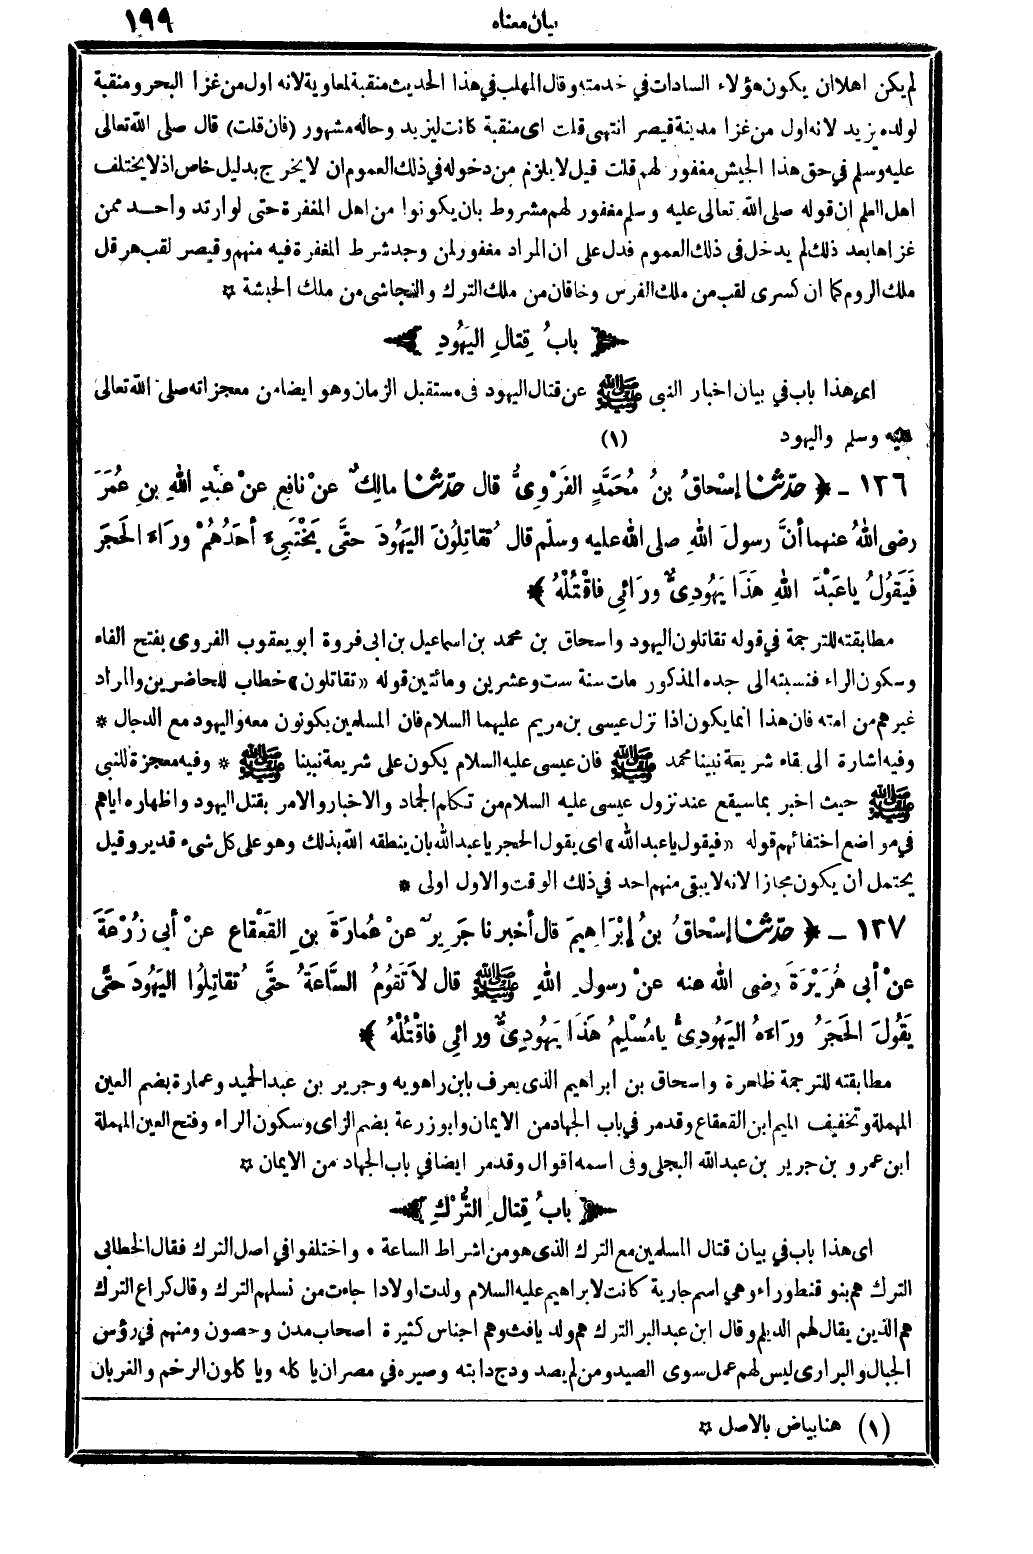 بيان معناه ١٩٩
لم يكن اهلا ان يكون هؤلاء السادات في خدمته وقال المهلب في هذا الحديث منقبة لمعاوية لانه اول من غزا البحر ومنقبة
لولده يزيد لانه اول من غزا مدينة قيصر انتهى قلت اى منقبة كانت ليزيد وحاله مشهور (فان قلت) قال صلى الله تعالى
عليه وسلم في حق هذا الجيش مغفور لهم قلت قيل لا يلزم من دخوله في ذلك العموم ان لا يخرج بدليل خاص اذ لا يختلف
اهل العلم ان قوله صلى الله تعالى عليه وسلم مغفور لهم مشروط بان يكونوا من اهل المغفرة حتى لو ارتد واحد ممن
غزاها بعد ذلك لم يدخل فى ذلك العموم فدل على ان المراد مغفور لمن وجد شرط المغفرة فيه منهم وقيصر لقب هرقل
ملك الروم كما ان كسرى لقب من ملك الفرس وخاقان من ملك الترك والنجاشى من ملك الحبشة ۞
﴿ بابُ قِتالِ اليَهُودِ ﴾
اى هذا باب في بيان اخبار النبي ﷺ عن قتال اليهود فى مستقبل الزمان وهو ايضا من معجزاته صلى الله تعالى
عليه وسلم واليهود (١)
١٣٦ - ﴿ حدّثنا إسْحاقُ بنُ مُحَمَّدٍ الفَرْوِىُّ قال حدّثنا مالِكٌ عنْ نافِعٍ عنْ عَبْدِ اللهِ بنِ عُمَرَ
رضى اللهُ عنهما أنَّ رسولَ اللهِ صلى الله عليه وسلّم قال تُقاتِلُونَ اليَهُودَ حتَّى يَخْتَبِىءَ أحَدُهُمْ ورَاءَ الحَجَرِ
فَيَقُولُ ياعَبْدَ اللهِ هَذَا يَهُودِىٌّ ورائِي فاقْتُلْهُ ﴾
مطابقته للترجمة في قوله تقاتلون اليهود واسحاق بن محمد بن اسماعيل بن ابى فروة ابو يعقوب الفروى بفتح الفاء
وسكون الراء فنسبته الى جده المذكور مات سنة ست وعشرين ومائتين قوله «تقاتلون» خطاب للحاضرين والمراد
غيرهم من امته فان هذا انما يكون اذا نزل عيسى بن مريم عليهما السلام فان المسلمين يكونون معه واليهود مع الدجال *
وفيه اشارة الى بقاء شريعة نبينا محمد ﷺ فان عيسى عليه السلام يكون على شريعة نبينا ﷺ * وفيه معجزة للنبي
ﷺ حيث اخبر بما سيقع عند نزول عيسى عليه السلام من تكلم الجماد والاخبار والامر بقتل اليهود واظهاره اياهم
في مواضع اختفائهم قوله «فيقول يا عبد الله» اى يقول الحجر يا عبد الله بان ينطقه الله بذلك وهو على كل شىء قدير وقيل
يحتمل ان يكون مجازا لانه لا يبقى منهم احد في ذلك الوقت والاول اولى *
١٣٧ - ﴿ حدّثنا إسْحاقُ بنُ إبْرَاهِيمَ قال أخبرنا جَرِيرٌ عنْ عُمارَةَ بنِ القَعْقاعِ عنْ أبى زُرْعَةَ
عنْ أبى هُرَيْرَةَ رضى الله عنه عنْ رسولِ اللهِ ﷺ قال لاَ تَقُومُ السَّاعَةُ حتَّى تُقاتِلُوا اليَهُودَ حتَّى
يَقُولَ الحَجَرُ ورَاءَهُ اليَهُودِىُّ يامُسْلِمُ هَذَا يَهُودِىٌّ ورائِي فاقْتُلْهُ ﴾
مطابقته للترجمة ظاهرة واسحاق بن ابراهيم الذى يعرف بابن راهويه وجرير بن عبد الحميد وعمارة بضم العين
المهملة وتخفيف الميم ابن القعقاع وقد مر في باب الجهاد من الايمان وابو زرعة بضم الزاى وسكون الراء وفتح العين المهملة
ابن عمرو بن جرير بن عبد الله البجلى وفى اسمه اقوال وقد مر ايضا في باب الجهاد من الايمان ۞
﴿ بابُ قِتالِ التُّرْكِ ﴾
اى هذا باب في بيان قتال المسلمين مع الترك الذى هو من اشراط الساعة * واختلفوا في اصل الترك فقال الخطابى
الترك هم بنو قنطوراء وهي اسم جارية كانت لابراهيم عليه السلام ولدت اولادا جاءت من نسلهم الترك وقال كراع الترك
هم الذين يقال لهم الديلم وقال ابن عبد البر الترك هم ولد يافث وهم اجناس كثيرة اصحاب مدن وحصون ومنهم في رؤس
الجبال والبرارى ليس لهم عمل سوى الصيد ومن لم يصد ودج دابته وصيره في مصران ياكله وياكلون الرخم والغربان
(١) هنا بياض بالاصل ۞